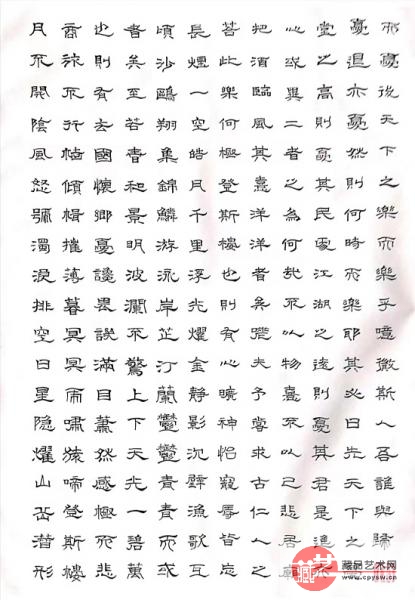 月不開陰風怒號濁浪排空日星隐耀山岳潛形
商旅不行檣傾楫摧薄暮冥冥虎嘯猿啼登斯樓
也則有去國懷鄉憂讒畏譏滿目蕭然感極而悲
者矣至若春和景明波瀾不驚上下天光一碧萬
頃沙鷗翔集錦鱗游泳岸芷汀蘭鬱鬱青青而或
長煙一空皓月千里浮光耀金靜影沉璧漁歌互
答此樂何極登斯樓也則有心曠神怡寵辱皆忘
把酒臨風其喜洋洋者矣嗟夫予嘗求古仁人之
心或異二者之為何哉不以物喜不以己悲居廟
堂之高則憂其民處江湖之遠則憂其君是進亦
憂退亦憂然則何時而樂耶其必曰先天下之憂
而憂後天下之樂而樂乎噫微斯人吾誰與歸
藏品艺术网
www.cpysw.cn